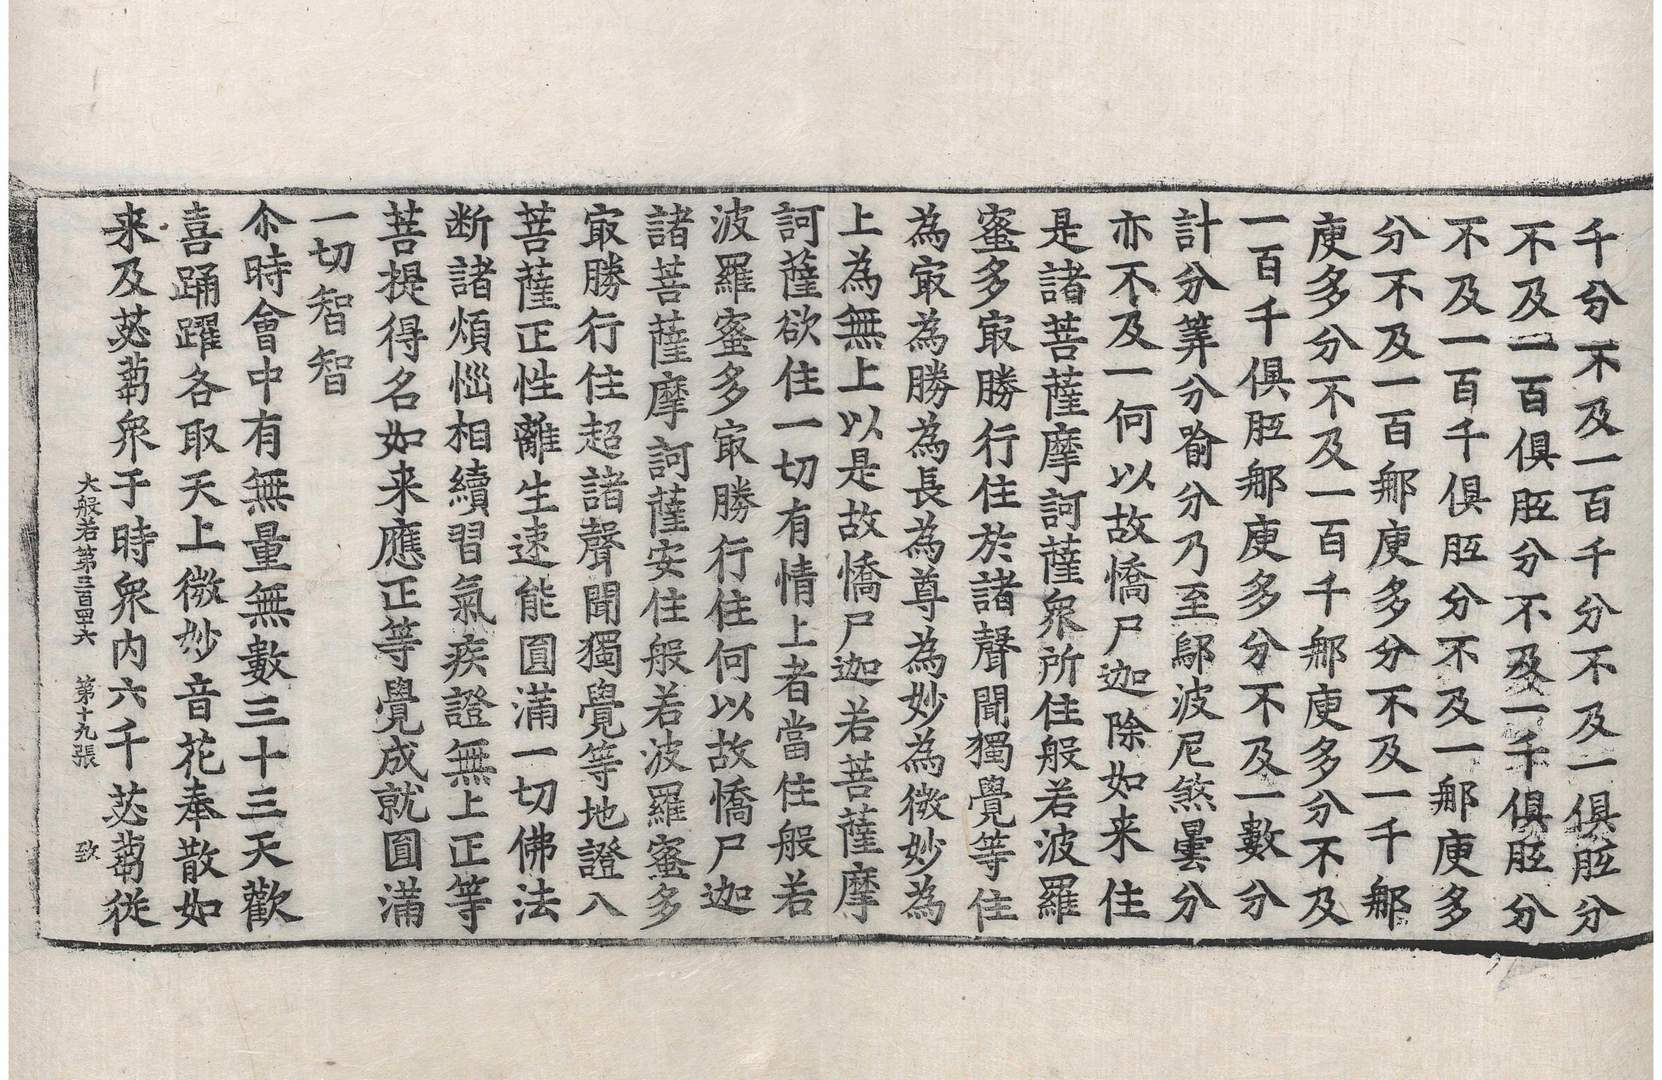 千分不及一百千分不及一俱胝分
不及一百俱胝分不及一千俱胝分
不及一百千俱胝分不及一那庾多
分不及一百那庾多分不及一千那
庾多分不及一百千那庾多分不及
一百千俱胝那庾多分不及一數分
計分筭分喻分乃至鄔波尼煞曇分
亦不及一何以故憍尸迦除如来住
是諸菩薩摩訶薩衆所住般若波羅
蜜多㝡勝行住於諸聲聞獨覺等住
為㝡為勝為長為尊為妙為微妙為
上為無上以是故憍尸迦若菩薩摩
訶薩欲住一切有情上者當住般若
波羅蜜多㝡勝行住何以故憍尸迦
諸菩薩摩訶薩安住般若波羅蜜多
㝡勝行住超諸聲聞獨覺等地證入
菩薩正性離生速能圓滿一切佛法
断諸煩惱相續習氣疾證無上正等
菩提得名如来應正等覺成就圓滿
一切智智
尒時會中有無量無數三十三天歡
喜踊躍各取天上微妙音花奉散如
来及苾蒭衆于時衆內六千苾蒭從
大般若第三百四十六　第十九張　致